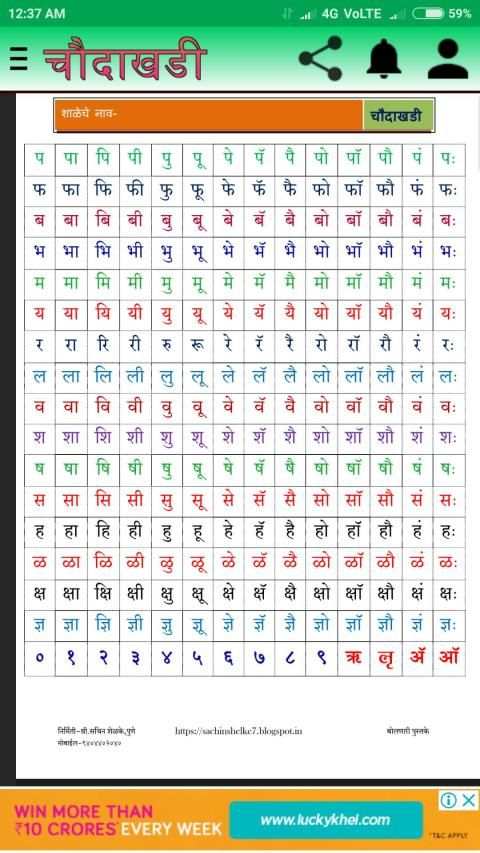 12:37 AM 4G VoLTE 59%
चौदाखडी
शाळेचे नाव- चौदाखडी
प पा पि पी पु पू पे पॅ पै पो पॉ पौ पं पः
फ फा फि फी फु फू फे फॅ फै फो फॉ फौ फं फः
ब बा बि बी बु बू बे बॅ बै बो बॉ बौ बं बः
भ भा भि भी भु भू भे भॅ भै भो भॉ भौ भं भः
म मा मि मी मु मू मे मॅ मै मो मॉ मौ मं मः
य या यि यी यु यू ये यॅ यै यो यॉ यौ यं यः
र रा रि री रु रू रे रॅ रै रो रॉ रौ रं रः
ल ला लि ली लु लू ले लॅ लै लो लॉ लौ लं लः
व वा वि वी वु वू वे वॅ वै वो वॉ वौ वं वः
श शा शि शी शु शू शे शॅ शै शो शॉ शौ शं शः
ष षा षि षी षु षू षे षॅ षै षो षॉ षौ षं षः
स सा सि सी सु सू से सॅ सै सो सॉ सौ सं सः
ह हा हि ही हु हू हे हॅ है हो हॉ हौ हं हः
ळ ळा ळि ळी ळु ळू ळे ळॅ ळै ळो ळॉ ळौ ळं ळः
क्ष क्षा क्षि क्षी क्षु क्षू क्षे क्षॅ क्षै क्षो क्षॉ क्षौ क्षं क्षः
ज्ञ ज्ञा ज्ञि ज्ञी ज्ञु ज्ञू ज्ञे ज्ञॅ ज्ञै ज्ञो ज्ञॉ ज्ञौ ज्ञं ज्ञः
० १ २ ३ ४ ५ ६ ७ ८ ९ ऋ लृ ॲ ऑ
निर्मिती-श्री.सचिन शेळके,पुणे https://sachinshelke7.blogspot.in बोलणारी पुस्तके
WIN MORE THAN
₹10 CRORES EVERY WEEK
www.luckykhel.com
*T&C APPLY